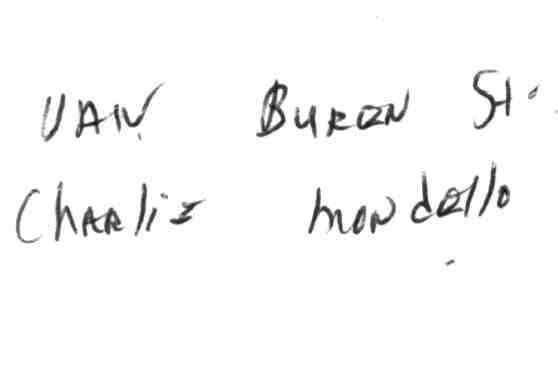 VAN BUREN St.
CHARLiE MONdEllo